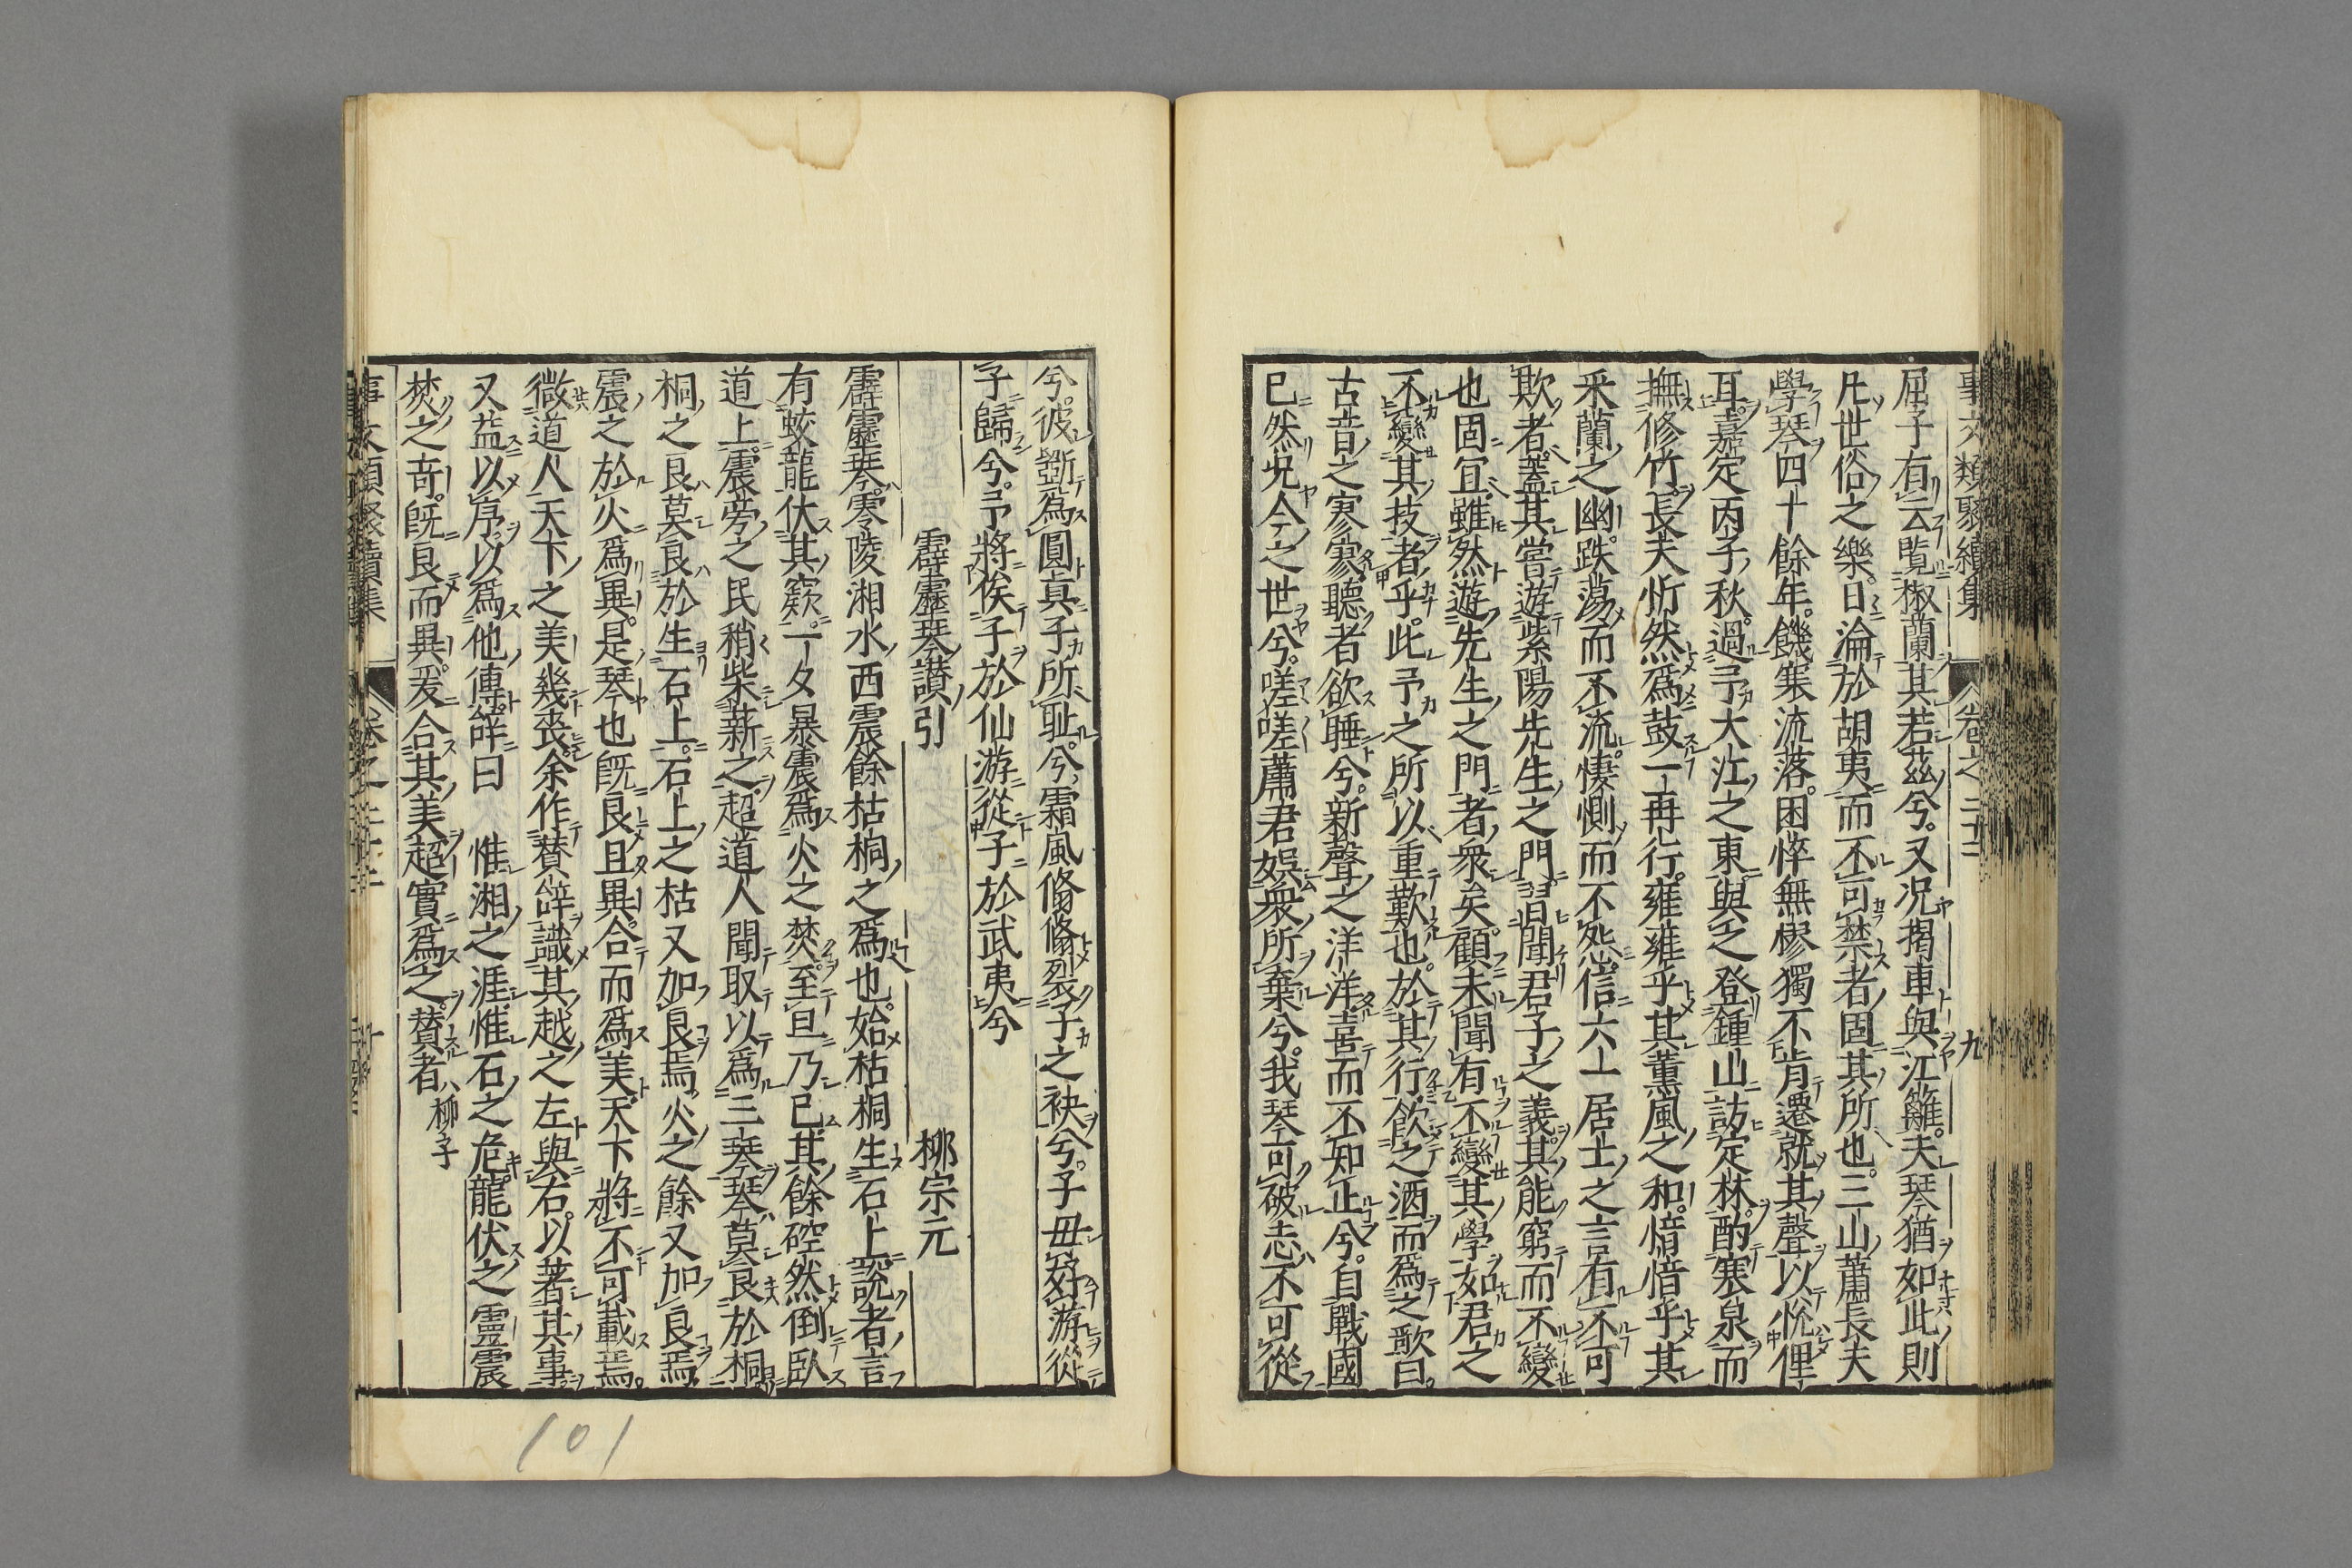 事文類聚續集 卷之二十二 九
屈子有云覽椒蘭其若茲兮。又况揭車與江籬。夫琴猶如此則
凡世俗之樂。日淪於胡夷而不可禁者。固其所也。三山蕭長夫
學琴四十餘年。饑寒流落。困悴無憀獨不肯遷就其聲以恱俚
耳。嘉定丙子秋。過予大江之東。與之登鍾山訪定林。酌寒泉而
撫修竹。長夫忻然爲鼓一再行。雍雍乎其薰風之和。愔愔乎其
采蘭之幽。跌蕩而不流。悽惻而不怨。信六一居士之言有不可
欺者。蓋其嘗遊紫陽先生之門。習聞君子之義。其能窮而不變
也固宜。雖然遊先生之門者衆矣。顧未聞有不變其學如君之
不變其技者乎。此予之所以重歎也。於其行飮之酒而爲之歌曰。
古音之寥寥聽者欲睡兮。新聲之洋洋喜而不知止兮。自戰國
已然况今之世兮。嗟嗟蕭君娯衆所棄兮。我琴可破志不可從
兮。彼斲爲圓真子所耻兮。霜風翛翛裂子之袂兮。子毋好游從
子歸兮。予將俟子於仙游從子於武夷兮
霹靂琴讃引 柳宗元
霹靂琴。零陵湘水西震餘枯桐之爲也。始枯桐生石上。說者言
有蛟龍伏其窾。一夕暴震爲火之焚。至旦乃已。其餘硿然倒臥
道上。震旁之民稍柴薪之。超道人聞取以爲三琴。琴莫良於桐
桐之良莫良於生石上。石上之枯又加良焉。火之餘又加良焉
震之於火爲異。是琴也旣良且異。合而爲美。天下將不可載焉。
微道人天下之美幾喪。余作賛辤識其越之左與右。以著其事。
又益以序。以爲他傳。辤曰 惟湘之涯。惟石之危。龍伏之靈震
焚之奇。旣良而異。爰合其美。超實爲之。賛者柳子
事文類聚續集 卷之二十二 十
101